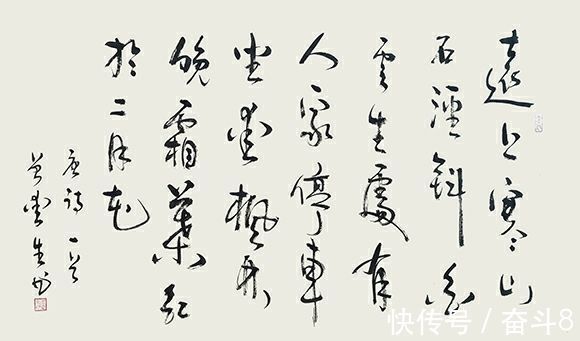 遠上寒山
石徑斜白
雲生處有
人家停車
坐愛楓林
晚霜葉紅
於二月花
唐詩一首
生书
快传号 / 奋斗8